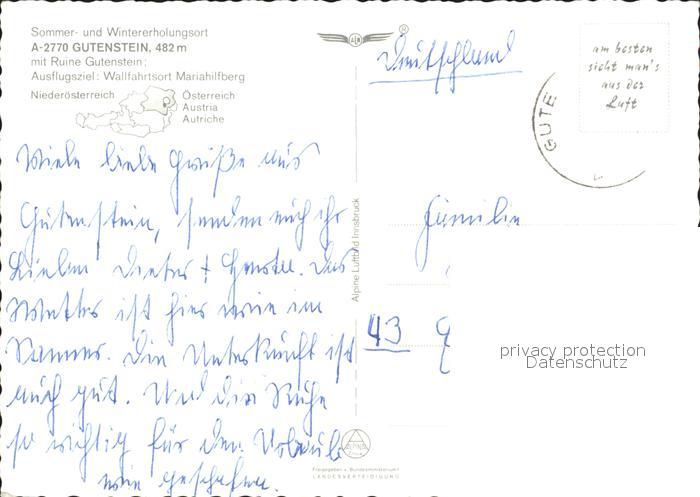 Sommer- und Wintererholungsort
A-2770 GUTENSTEIN, 482 m
mit Ruine Gutenstein;
Ausflugsziel: Wallfahrtsort Mariahilfberg
Niederösterreich
Österreich
Austria
Autriche
Viele liebe Grüße aus
Gutenstein, senden euch ihr
Lieben Dieter + . Das
Wetter ist hier wie im
Sommer. Die Unterkunft ist
auch gut. Und die Ruhe
so richtig für den Urlaub
wie geschaffen.
Alpine Luftbild Innsbruck
ALPINE
Freigegeben v. Bundesministerium f.
LANDESVERTEIDIGUNG
Deutschland
am besten
sieht man's
aus der
Luft
GUTE
Familie
43 G
privacy protection
Datenschutz